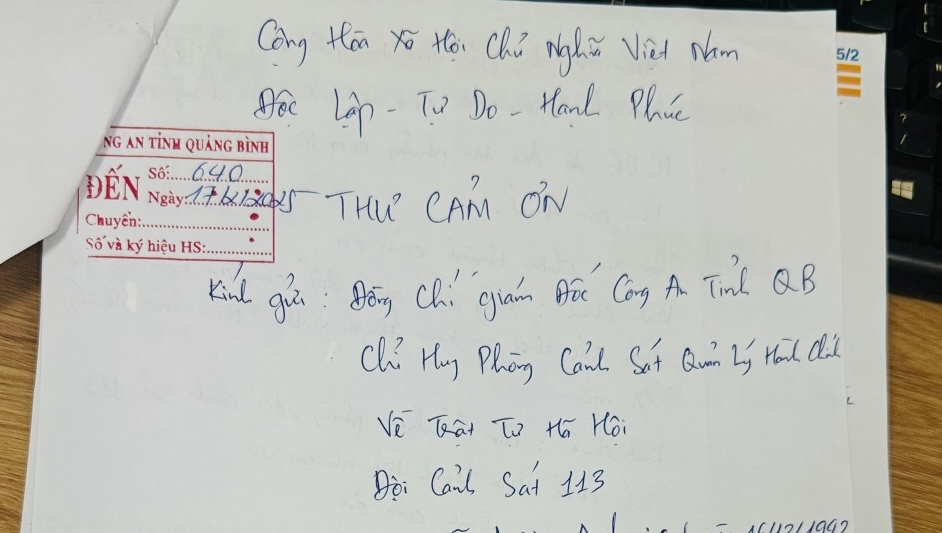 Cộng Hòa Xã Hội Chủ Nghĩa Việt Nam
Độc Lập - Tự Do - Hạnh Phúc
NG AN TỈNH QUẢNG BÌNH
ĐẾN
Số:....640
Ngày:17/2/2025
Chuyển:
Số và ký hiệu HS:
THƯ CẢM ƠN
Kính gửi : Đồng Chí giám Đốc Công An Tỉnh QB
Chỉ Huy Phòng Cảnh Sát Quản Lý Hành Chính
Về Trật Tự Xã Hội
Đội Cảnh Sát 113
16/12/1992
5/2